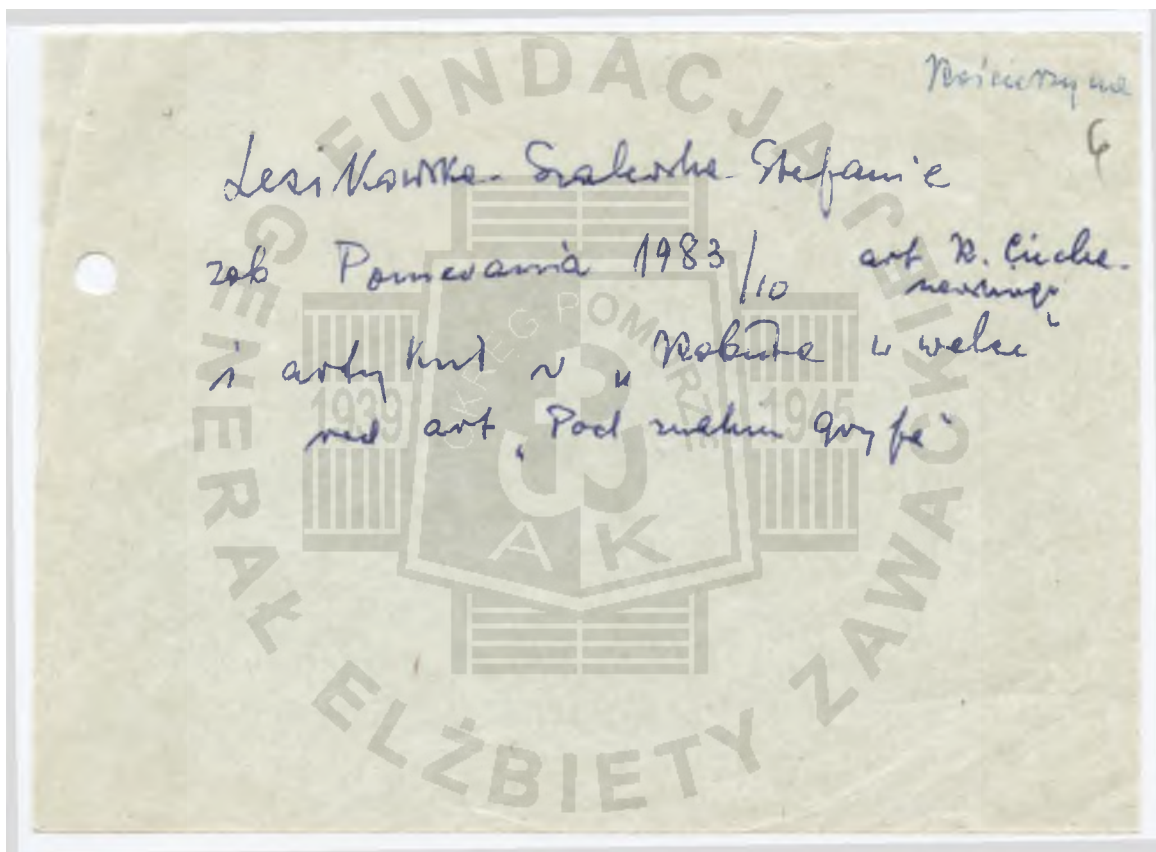 Kościerzyna
6
Lesikowska-Szalewska Stefania
zob Pomerania 1983/10 art R. Ciecha-
nowskiego
i artykuł w „Kobieta w walce”
red art „Pod znakiem gryfa”
FUNDACJA GENERAŁ ELŻBIETY ZAWACKIEJ
OKRĘG POMORZE
1939 1945
AK